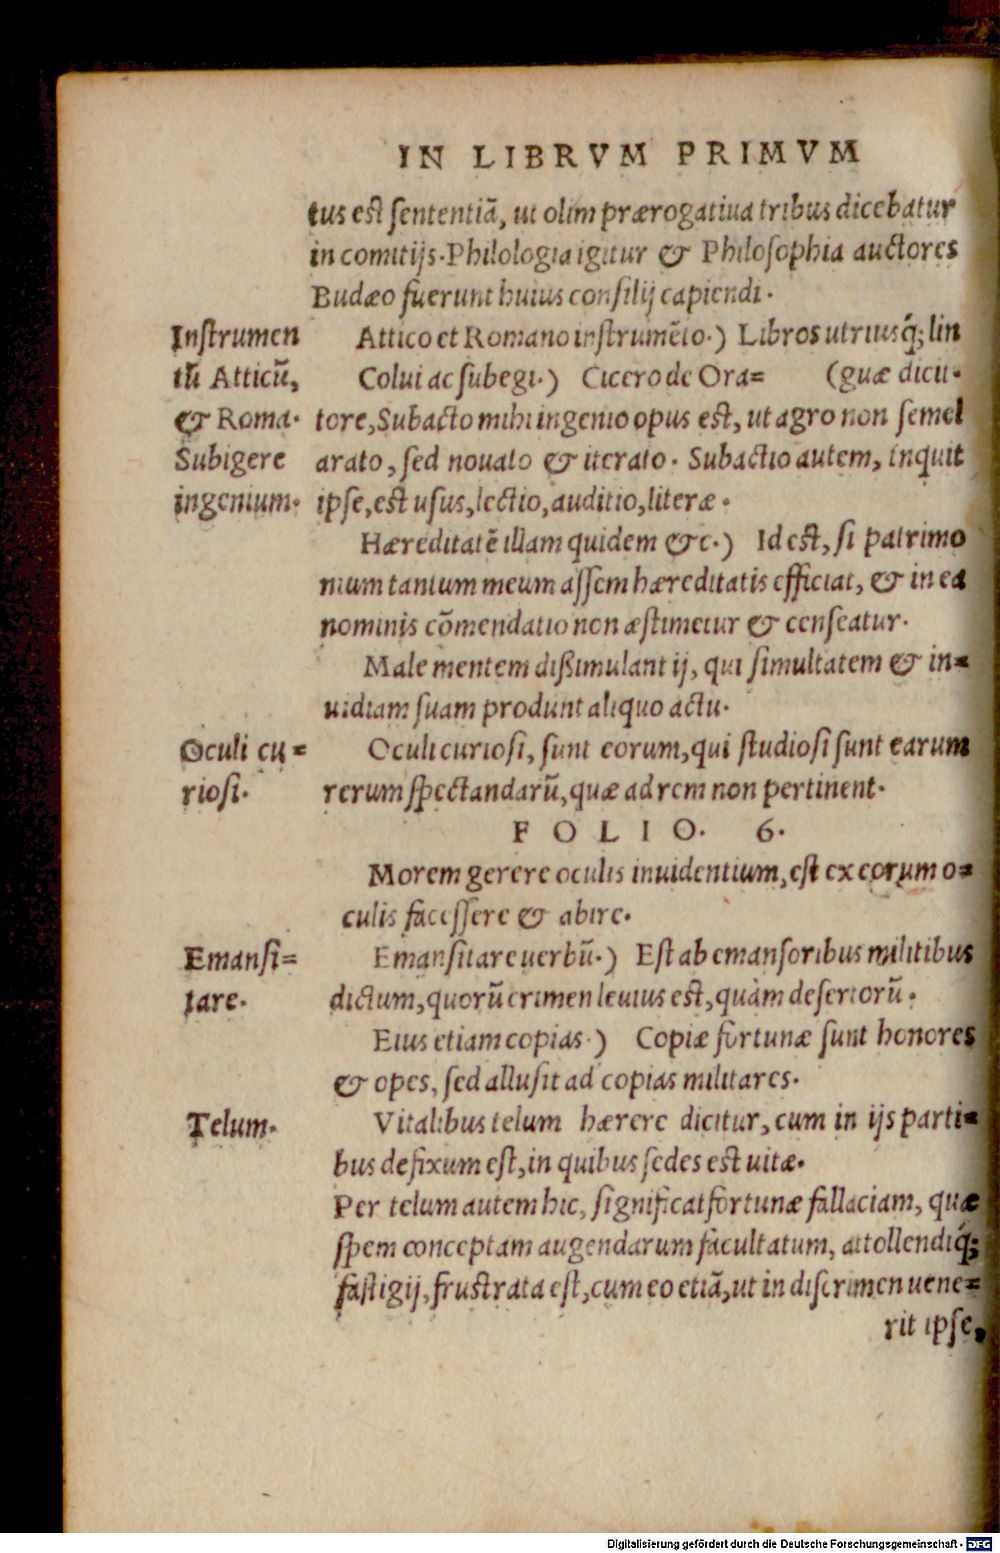 IN LIBRVM PRIMVM
tus est sententiã, ut olim prærogatiua tribus dicebatur
in comitijs. Philologia igitur & Philosophia auctores
Budæo fuerunt huius consilij capiendi.
Instrumen
tũ Atticũ,
& Roma.
Subigere
ingenium.
Attico et Romano instrumẽto.) Libros utriusq́; lin
Colui ac subegi.) Cicero de Ora= (guæ dicit.
tore, Subacto mihi ingenio opus est, ut agro non semel
arato, sed nouato & iterato. Subactio autem, inquit
ipse, est usus, lectio, auditio, literæ.
Hæreditatẽ illam quidem &c.) Id est, si patrimo
nium tantum meum assem hæreditatis efficiat, & in ea
nominis cõmendatio non æstimetur & censeatur.
Male mentem dißimulant ij, qui simultatem & in=
uidiam suam produnt aliquo actu.
Oculi cu=
riosi.
Oculi curiosi, sunt eorum, qui studiosi sunt earum
rerum spectandarũ, quæ ad rem non pertinent.
FOLIO. 6.
Morem gerere oculis inuidentium, est ex eorum o=
culis facessere & abire.
Emansi=
tare.
Emansitare uerbũ.) Est ab emansoribus militibus
dictum, quorũ crimen leuius est, quàm desertorũ.
Eius etiam copias.) Copiæ fortunæ sunt honores
& opes, sed allusit ad copias militares.
Telum.
Vitalibus telum hærere dicitur, cum in ijs parti=
bus defixum est, in quibus sedes est uitæ.
Per telum autem hic, significat fortunæ fallaciam, quæ
spem conceptam augendarum facultatum, attollendiq́;
fastigij, frustrata est, cum eo etiã, ut in discrimen uene=
rit ipse,
Digitalisierung gefördert durch die Deutsche Forschungsgemeinschaft - DFG